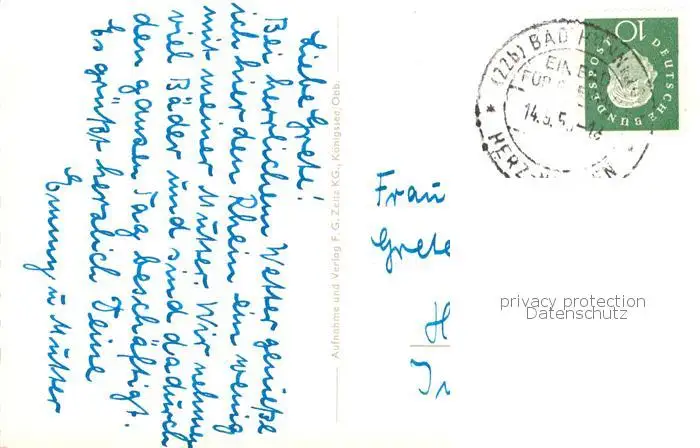 Liebe Grete!
Bei herrlichem Wetter genieße
ich hier den Rhein ein wenig
mit meiner Mutter. Wir nehmen
viel Bäder und sind dadurch
den ganzen Tag beschäftigt.
Es grüßt herzlich Deine
Emmy u Mutter
Aufnahme und Verlag F. G. Zeitz KG., Königssee/Obb.
10
DEUTSCHE BUNDESPOST
(22b) BAD
EIN
FÜR
14.9.5
HERZ
Frau
Grete
H
privacy protection
Datenschutz